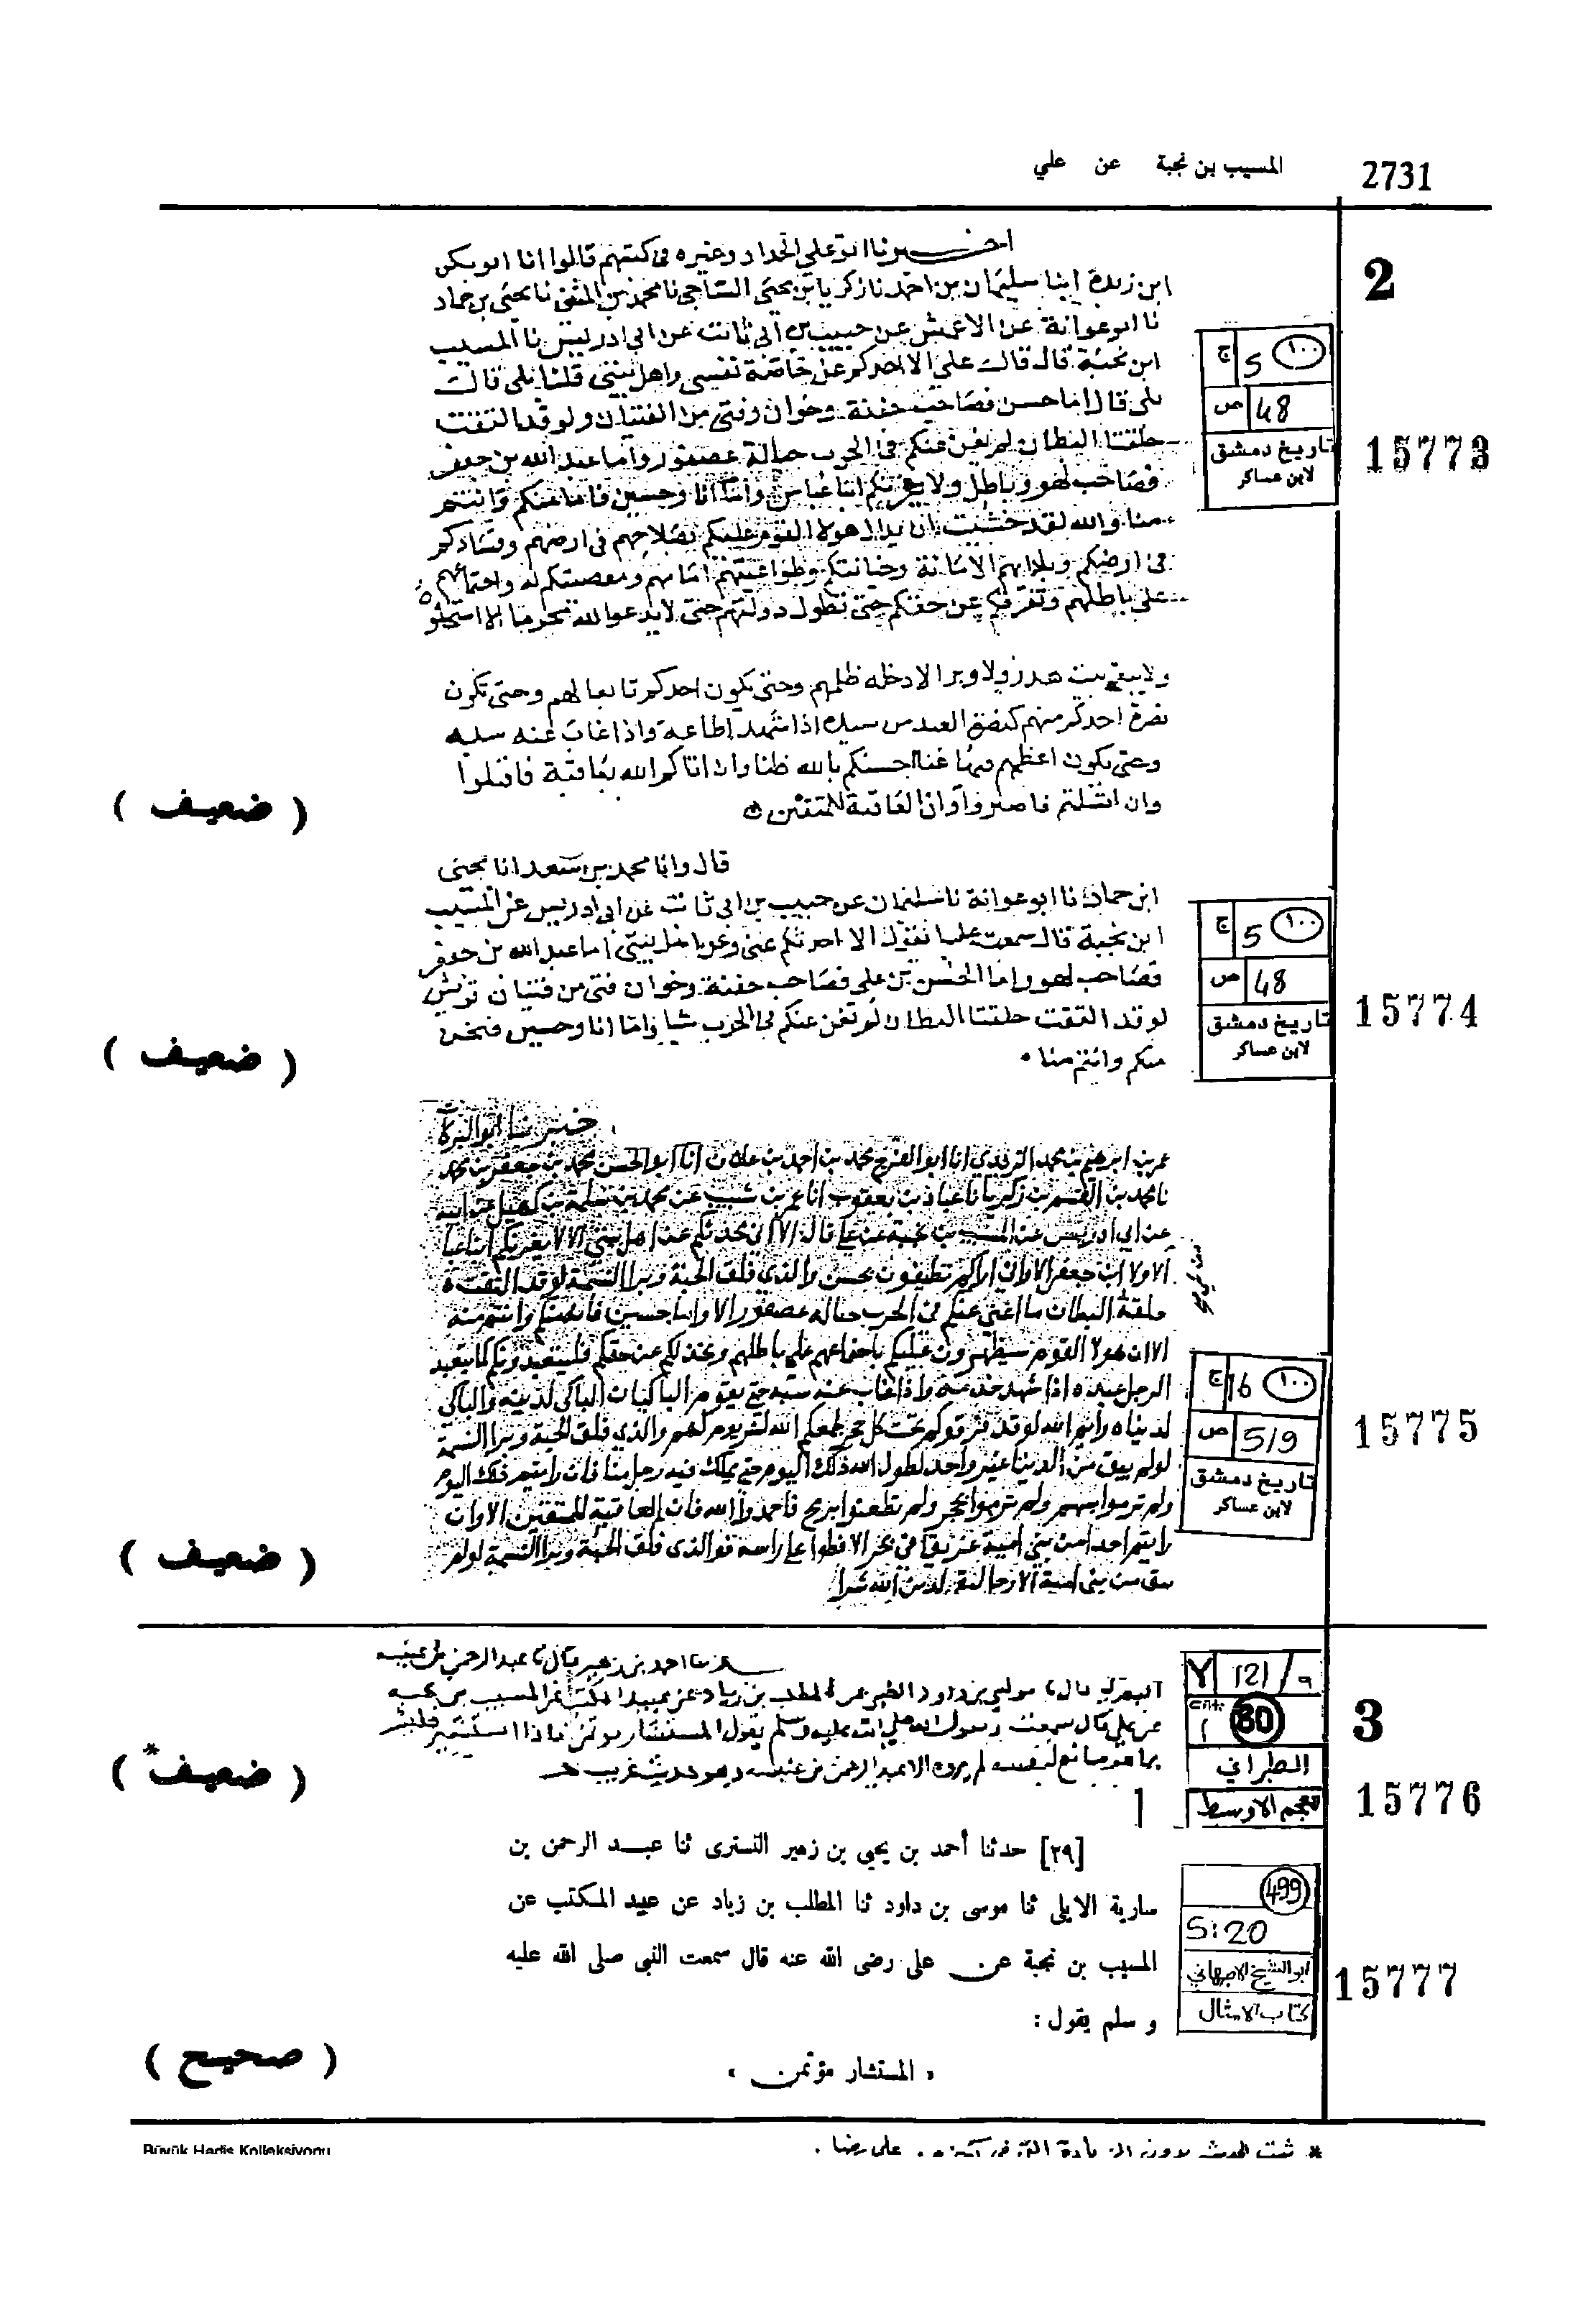 2731
المسيب بن نجبة عن علي
2
اخبرنا ابو علي الحداد وغيره في كتبهم قالوا انا ابو بكر
ابن ريذة انبا سليمان بن احمد نا زكريا بن يحيى الساجي نا محمد بن المثنى نا يحيى بن حماد
نا ابو عوانة عن الاعمش عن حبيب بن ابي ثابت عن ابي ادريس نا المسيب
ابن نجبة قال قال علي الا احدثكم عن خاصة نفسي واهل بيتي قلنا بلى قال
بلى قال اما حسن فصاحب جفنة وخوان وفتى من الفتيان ولو قد التقت
حلقتا البطان لم يغن عنكم في الحرب حبالة عصفور واما عبد الله بن جعفر
فصاحب لهو وباطل ولا يغرنكم ابنا عباس واما انا وحسين فانا منكم وانتم
منا والله لقد خشيت ان يدال هولا القوم عليكم بصلاحهم في ارضهم وفسادكم
في ارضكم وبادايهم الامانة وخيانتكم وطواعيتهم امامهم ومعصيتكم له واجتماعهم
على باطلهم وتفرقكم عن حقكم حتى تطول دولتهم حتى لا يدعوا لله محرما الا استحلوه
ولا يبقى بيت مدر ولا وبر الا دخله ظلمهم وحتى يكون احدكم تابعا لهم وحتى تكون
نصرة احدكم منهم كنصرة العبد من سيده اذا شهد اطاعه واذا غاب عنه سبه
وحتى يكون اعظمهم فيها غنا احسنكم بالله ظنا وان اتاكم الله بعافية فاقبلوا
وان ابتليتم فاصبروا وان العاقبة للمتقين
١٠٠ 5 ج
48 ص
تاريخ دمشق
لابن عساكر
15773
( ضعيف )
قال وانا محمد بن سعد انا يحيى
ابن حماد نا ابو عوانة نا سليمان عن حبيب بن ابي ثابت عن ابي ادريس عن المسيب
ابن نجبة قال سمعت عليا يقول الا احدثكم عني وعن اهل بيتي اما عبد الله بن جعفر
فصاحب لهو واما الحسن بن علي فصاحب جفنة وخوان فتى من فتيان قريش
لو قد التقت حلقتا البطان لم يغن عنكم في الحرب شيا واما انا وحسين فنحن
منكم وانتم منا
١٠٠ 5 ج
48 ص
تاريخ دمشق
لابن عساكر
15774
( ضعيف )
خبرنا ابو البركات
عمر بن ابرهيم بن محمد الزيدي انا ابو الفرج محمد بن احمد بن علان انا ابو الحسن محمد بن جعفر بن محمد
نا محمد بن القسم بن زكريا نا عباد بن يعقوب انا عمر بن شبيب عن محمد بن سلمة بن كهيل عن ابيه
عن ابي ادريس عن المسيب بن نجبة عن علي قال الا اني احدثكم عن اهل بيتي الا لا يغرنكم ابنا عباس
الا ولا ابن جعفر الا وان اراكم تطيفون بحسن والذي فلق الحبة وبرا النسمة لو قد التقت
حلقة البطان ما اغنى عنكم في الحرب حبالة عصفور الا واما حسين فانه منكم وانتم منه
الا ان هولا القوم سيظهرون عليكم باجتماعهم على باطلهم وتخاذلكم عن حقكم فليستعبدونكم كما يتعبد
الرجل عبده اذا شهد خدمه واذا غاب عنه سبه حتى يقوم الباكيان الباكي لدينه والباكي
لدنياه وايم الله لو قد فرقوكم تحت كل حجر لجمعكم الله لشر يوم لهم والذي فلق الحبة وبرا النسمة
لو لم يبق من الدنيا غير واحد لطول الله ذلك اليوم حتى يملك فيه رجل منا فان رايتم ذلك اليوم
ولم ترموا بسهم ولم ترموا بحجر ولم تطعنوا برمح فاحمدوا الله فان العاقبة للمتقين الا وان
رايتم احدا من بني امية غريقا في بحر الا فطوا على راسه فوالذي فلق الحبة وبرا النسمة لو لم
يبق من بني امية الا رجل الله شرا
١٠٠ 16 ج
519 ص
تاريخ دمشق
لابن عساكر
15775
( ضعيف )
احمد بن زهير قال نا عبد الرحمن بن عنبسه
البصري قال نا موسى بن داود المطلب بن زياد عن عبيد المكتب عن المسيب بن نجبه
عن علي قال سمعت رسول الله صلى الله عليه وسلم يقول المستشار موتمن فاذا استشير فليشر
بما هو صانع لنفسه لم يروه الا عبد الرحمن بن عنبسه وهو حديث غريب
٧ 121/٩
80
الطبراني
معجم الاوسط
3
15776
( ضعيف* )
[٢٩] حدثنا أحمد بن يحيى بن زهير التسترى ثنا عبد الرحمن بن
سارية الايلى ثنا موسى بن داود ثنا المطلب بن زياد عن عبيد المكتب عن
المسيب بن نجبة عن على رضى الله عنه قال سمعت النبى صلى الله عليه
و سلم يقول :
« المستشار مؤتمن »
499
S:20
ابو الشيخ الاصبهاني
كتاب الامثال
15777
( صحيح )
Büyük Hadis Kolleksiyonu
* ثبت الحديث بدون الزيادة التي في آخره . علي رضا .